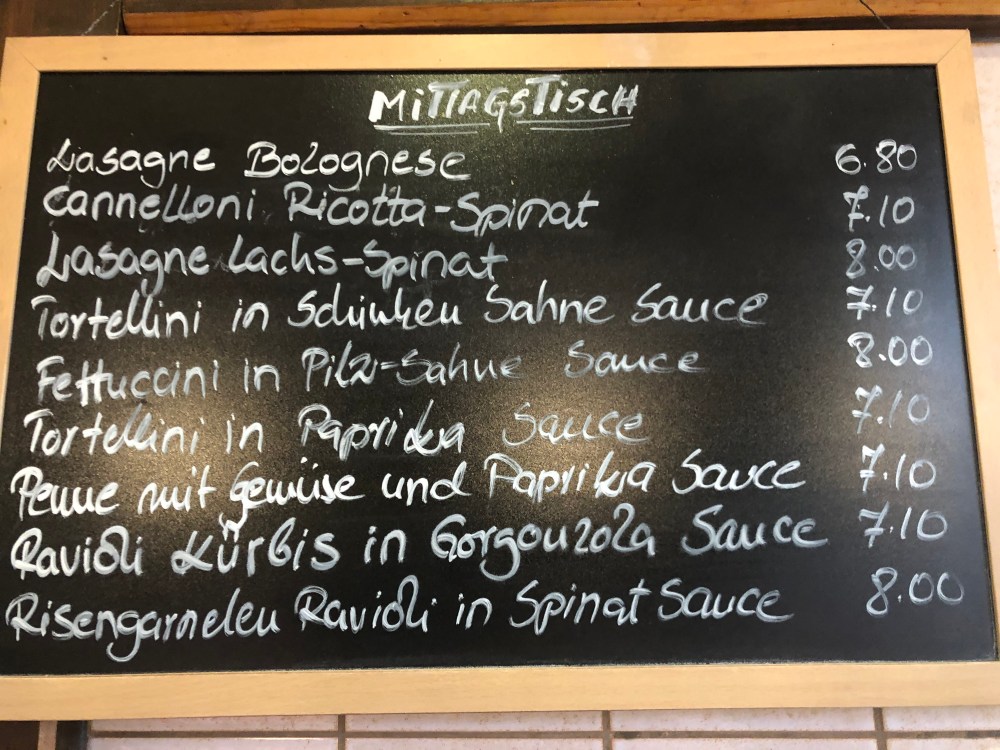 MiTTAGSTiSCH
Lasagne Bolognese 6.80
Cannelloni Ricotta-Spinat 7.10
Lasagne Lachs-Spinat 8.00
Tortellini in Schinken Sahne Sauce 7.10
Fettuccini in Pilz-Sahne Sauce 8.00
Tortellini in Paprika Sauce 7.10
Penne mit Gemüse und Paprika Sauce 7.10
Ravioli Kürbis in Gorgonzola Sauce 7.10
Risengarnelen Ravioli in Spinat Sauce 8.00